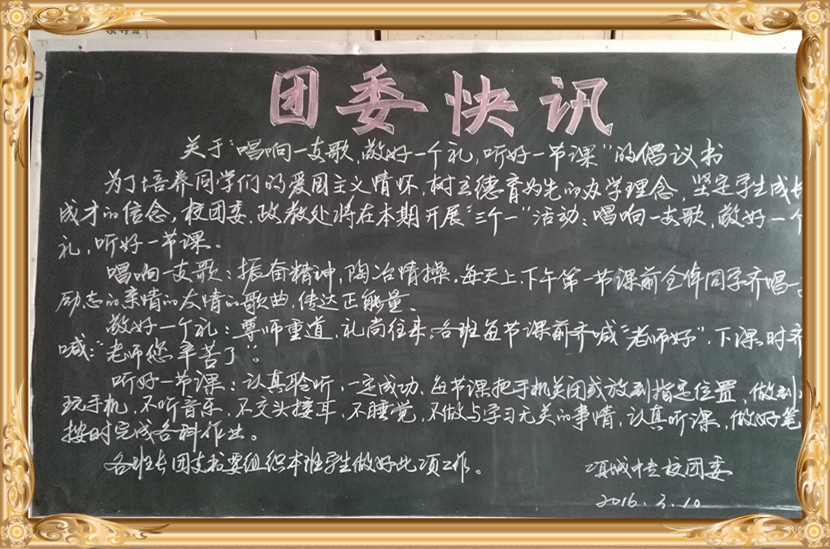 团委快讯
关于“唱响一支歌,敬好一个礼,听好一节课”的倡议书
为了培养同学们的爱国主义情怀,树立德育为先的办学理念,坚定学生成长
成才的信念,校团委、政教处将在本期开展“三个一”活动:唱响一支歌,敬好一个
礼,听好一节课。
唱响一支歌:振奋精神,陶冶情操,每天上、下午第一节课前全体同学齐唱
励志的亲情的友情的歌曲,传达正能量。
敬好一个礼:尊师重道,礼尚往来,各班每节课前齐喊“老师好”,下课时齐
喊:“老师您辛苦了”。
听好一节课:认真聆听,一定成功,每节课把手机关闭或放到指定位置,做到
玩手机,不听音乐,不交头接耳,不睡觉,不做与学习无关的事情,认真听课,做好笔
按时完成各科作业。
各班长团支书要组织本班学生做好此项工作。
项城中专校团委
2016.3.10